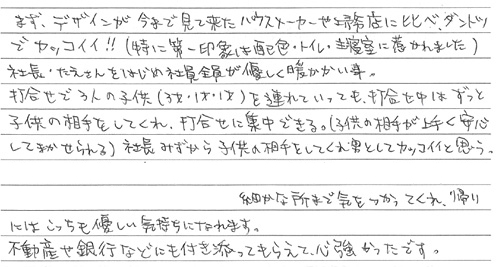 まず、デザインが今まで見て来たハウスメーカーや工務店に比べ、ダントツ
でカッコイイ!!(特に第一印象は配色・トイレ・主寝室に惹かれました)
社長・たえさんをはじめ社員全員が優しく暖かかい事。
打合せで3人の子供(3才・1才・1才)を連れていっても、打合せ中はずっと
子供の相手をしてくれ、打合せに集中できる。(子供の相手が上手く安心
してまかせられる)社長みずから子供の相手をしてくれ男としてカッコイイと思う。
細かな所まで気をつかってくれ、帰り
にはこっちも優しい気持ちになれます。
不動産や銀行などにも付き添ってもらえて、心強かったです。